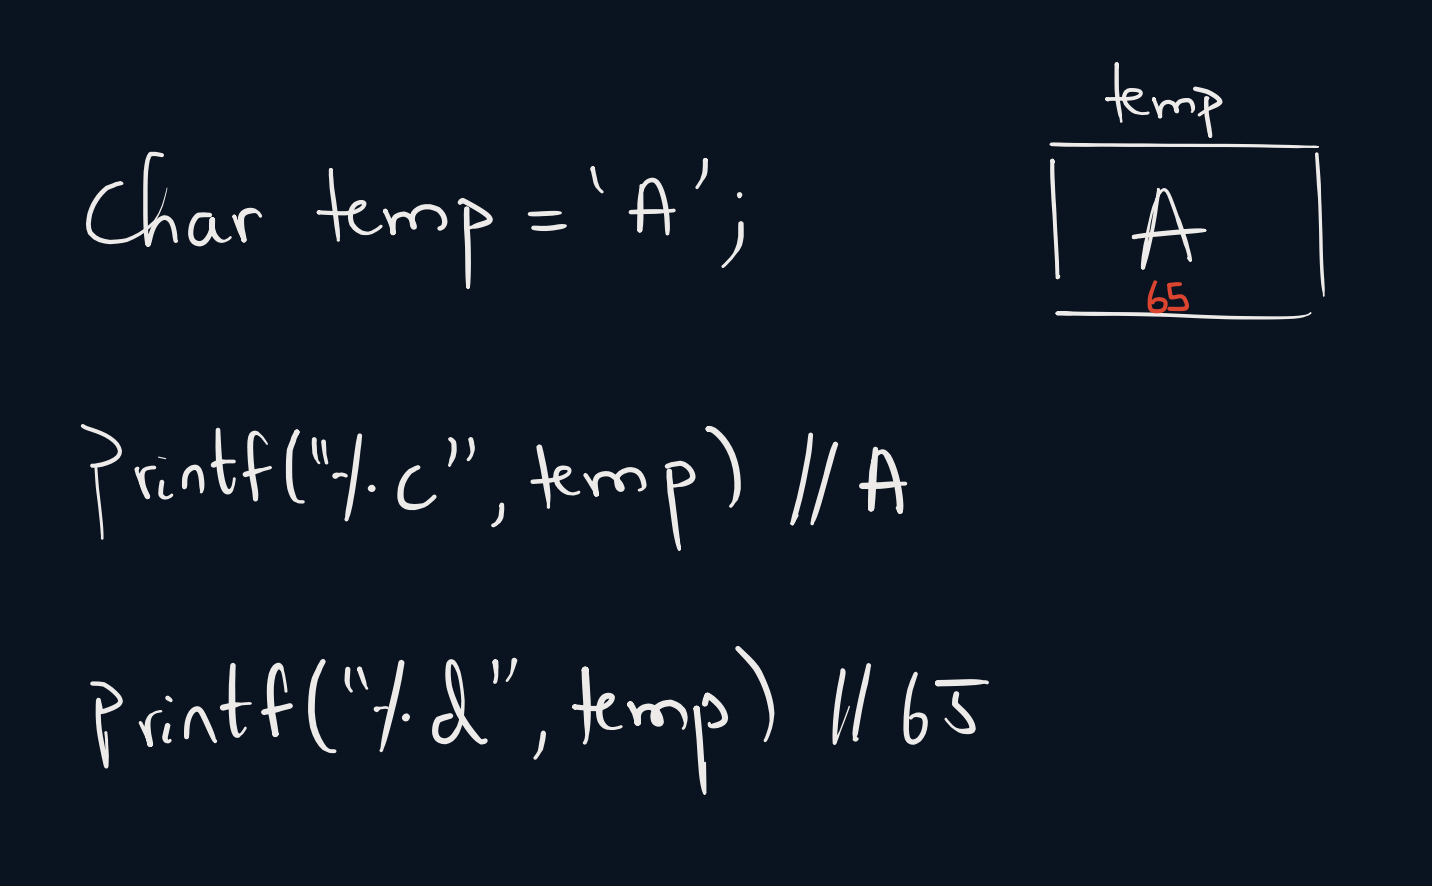 temp
Char temp = 'A';
A
65
Printf("%c", temp) //A
printf("%d", temp) //65